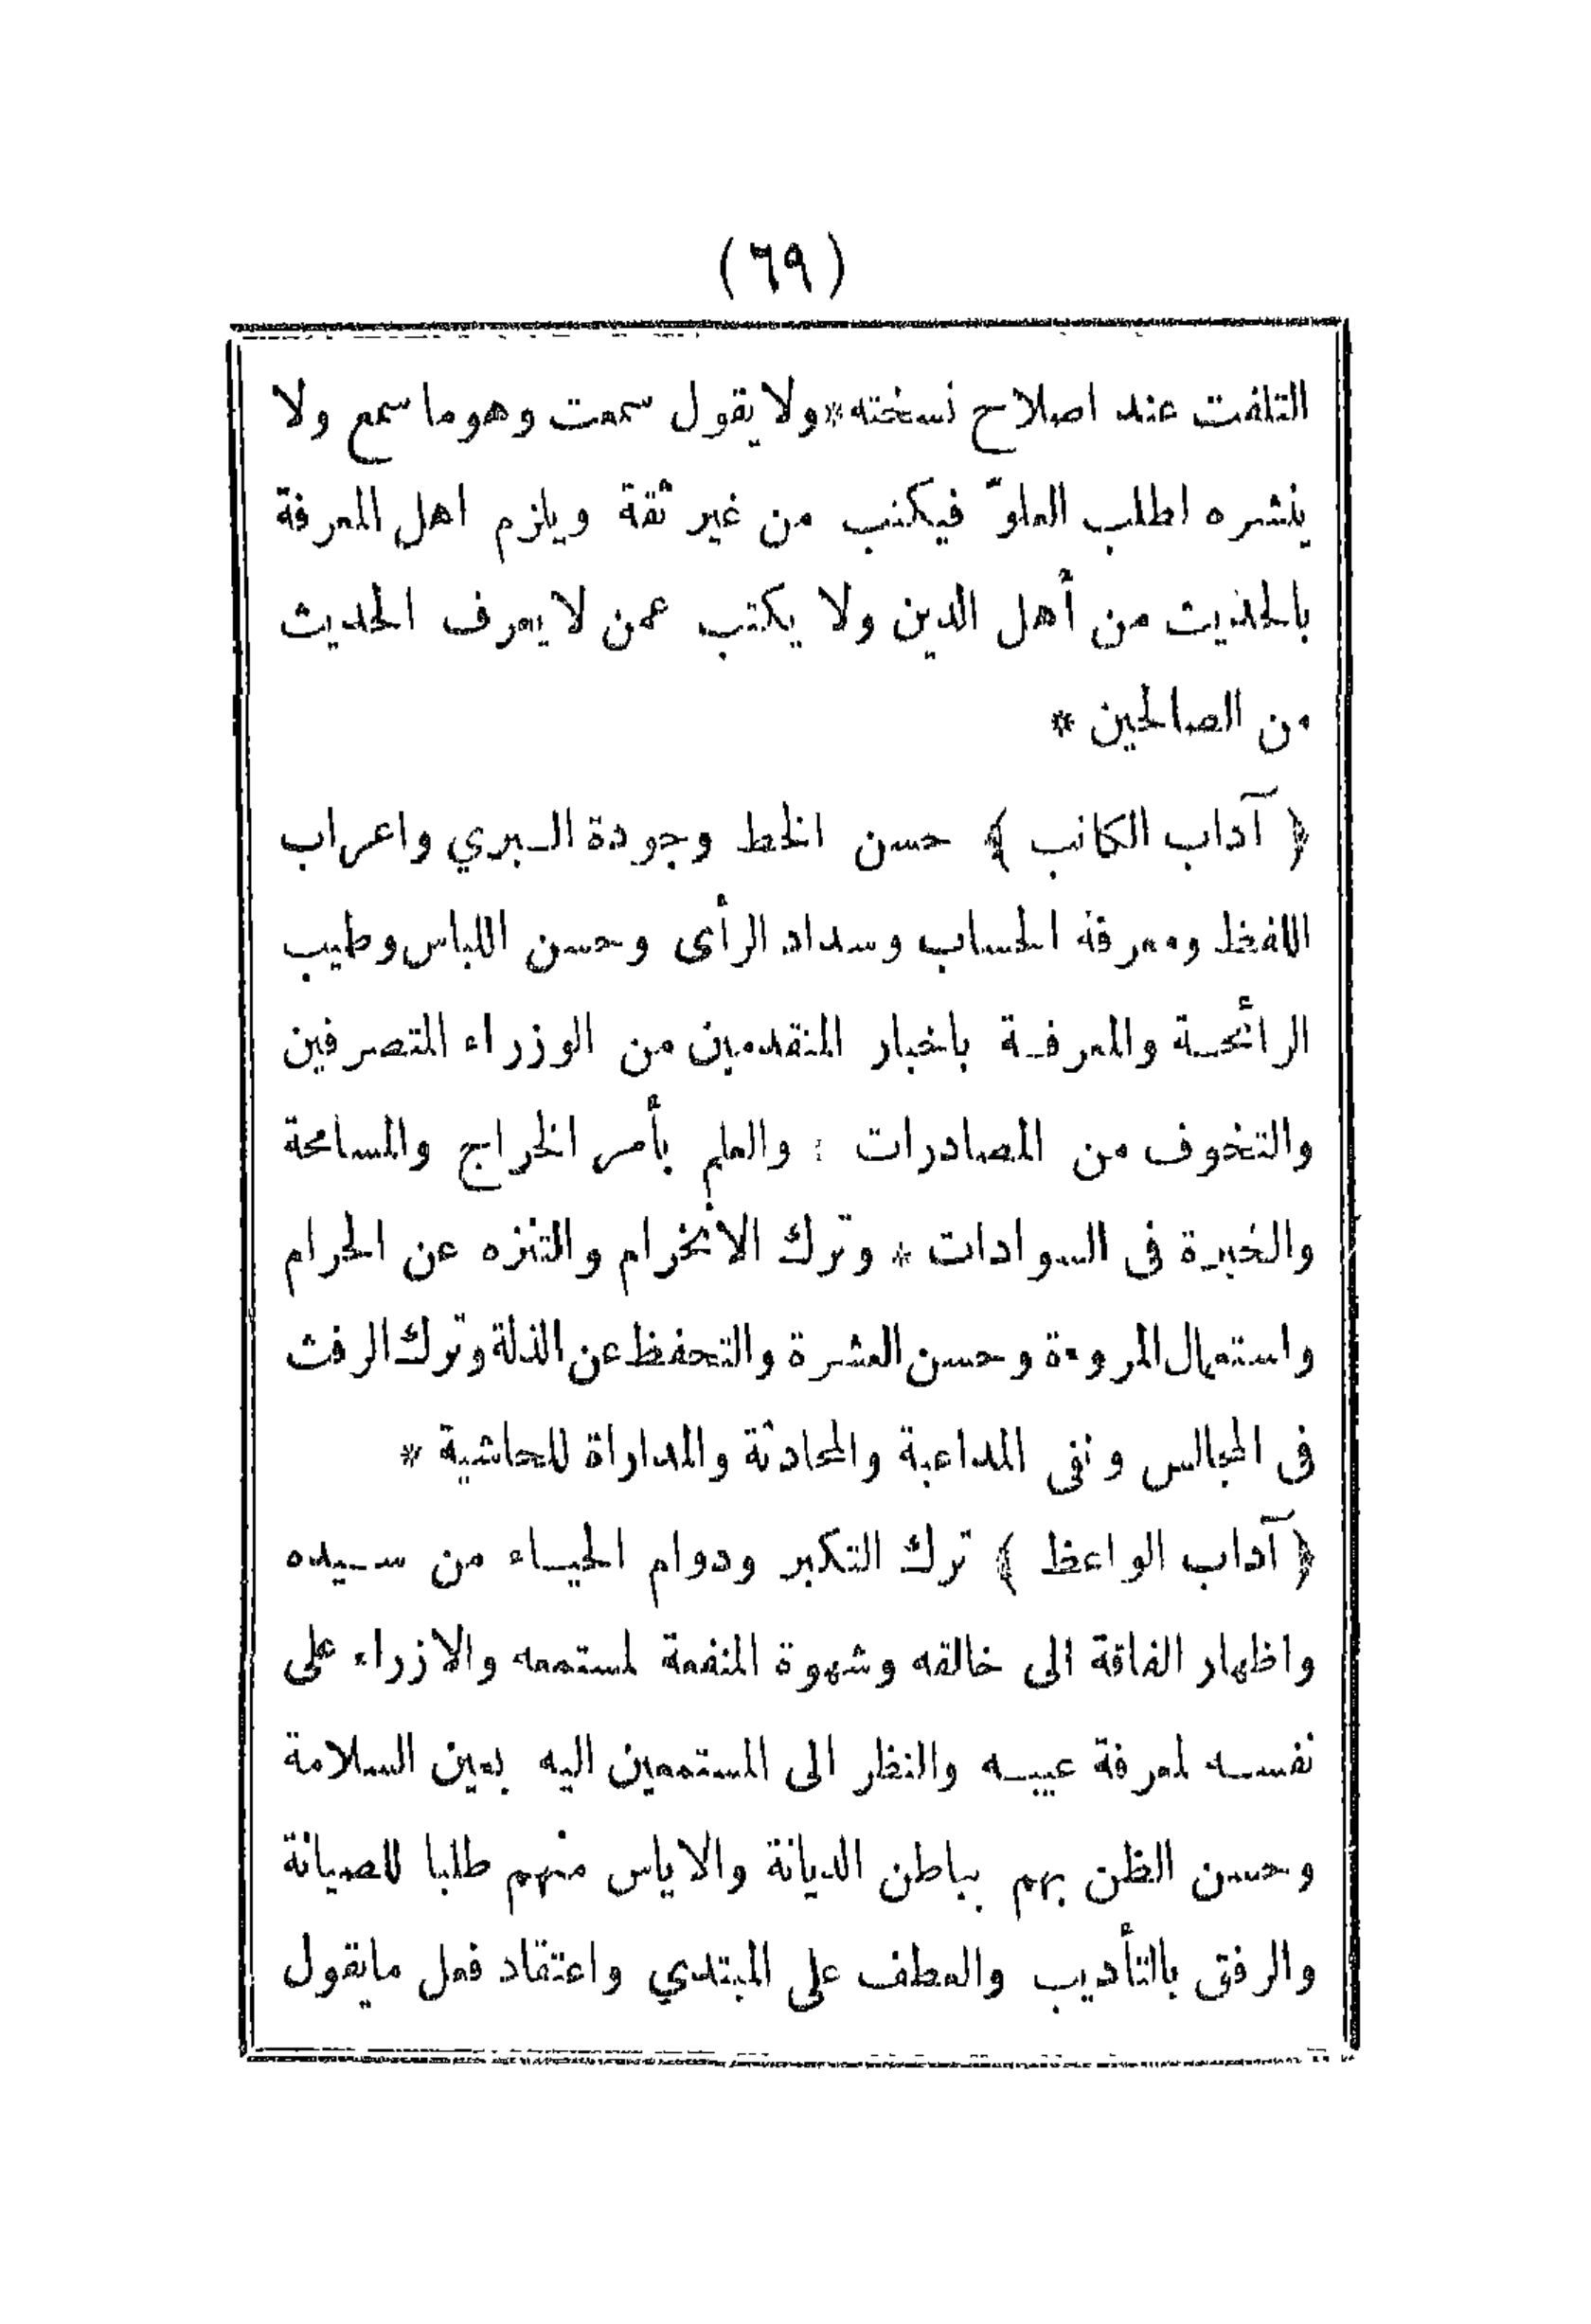 (٦٩)
التلفت عند اصلاح نسخته*ولا يقول سمعت وهو ما سمع ولا
ينشره لطلب العلوّ فيكتب من غير ثقة ويلزم اهل المعرفة
بالحديث من أهل الدين ولا يكتب عمن لا يعرف الحديث
من الصالحين *
﴿ آداب الكاتب ﴾ حسن الخط وجودة البري واعراب
اللفظ ومعرفة الحساب وسداد الرأى وحسن اللباس وطيب
الرائحة والمعرفة باخبار المتقدمين من الوزراء المتصرفين
والتخوف من المصادرات : والعلم بأمر الخراج والمسامحة
والخبرة فى السوادات * وترك الانخرام والتنزه عن الحرام
واستعمال المروءة وحسن العشرة والتحفظ عن الذلة وترك الرفث
فى المجالس ونفى المداعبة والمحادثة والمداراة للحاشية *
﴿ آداب الواعظ ﴾ ترك التكبر ودوام الحياء من سيده
واظهار الفاقة الى خالقه وشهوة المنفعة لمستمعه والازراء على
نفسه لمعرفة عيبه والنظر الى المستمعين اليه بعين السلامة
وحسن الظن بهم بباطن الديانة والاياس منهم طلبا للصيانة
والرفق بالتأديب والعطف على المبتدي واعتقاد فعل مايقول